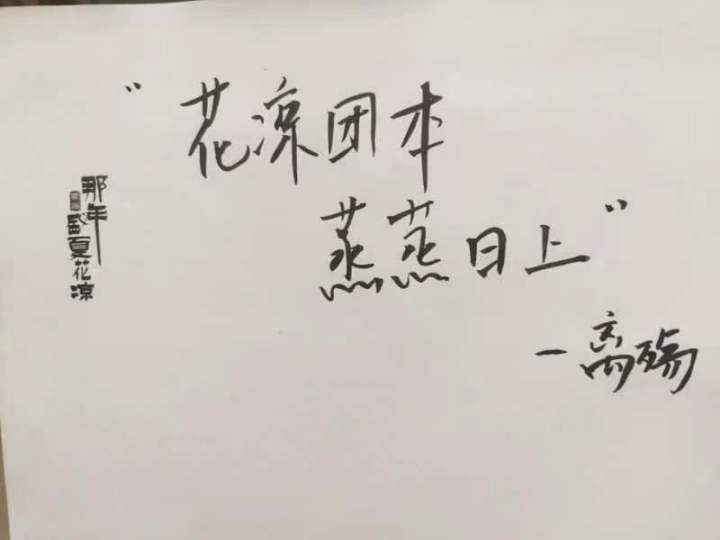 “花凉团本
蒸蒸日上”
—离殇
那年
盛夏花凉